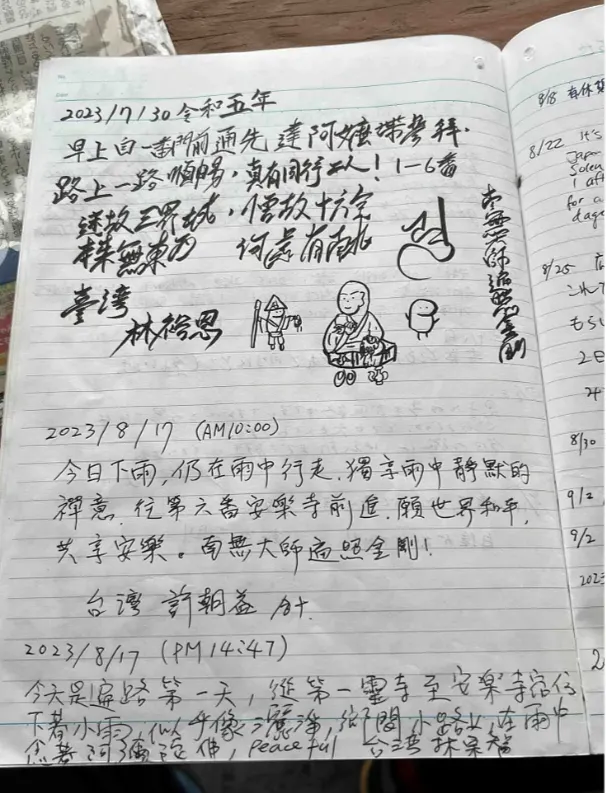 2023/7/30 令和五年
早上自一番門前通先達阿嬤帶參拜.
路上一路順暢,真有同行二人! 1-6番
迷故三界城,悟故十方空
本來無東西 何處有南北
臺灣
林裕恩
南無大師遍照金剛
2023/8/17 (AM10:00)
今日下雨,仍在雨中行走.獨享雨中靜默的
禪意.往第六番安樂寺前進.願世界和平,
共享安樂。南無大師遍照金剛!
台灣 許朝益
2023/8/17 (PM 14:47)
今天是遍路第一天,從第一靈寺至安樂寺宿住
下著小雨,似乎像灑淨,鄉間小路上,在雨中
念著阿彌陀佛, peaceful 台灣
8/18
8/22 It's
Japan
1 aft
for a
8/25
これで
もらい
2日
24
8/30
9/2
9/2
202